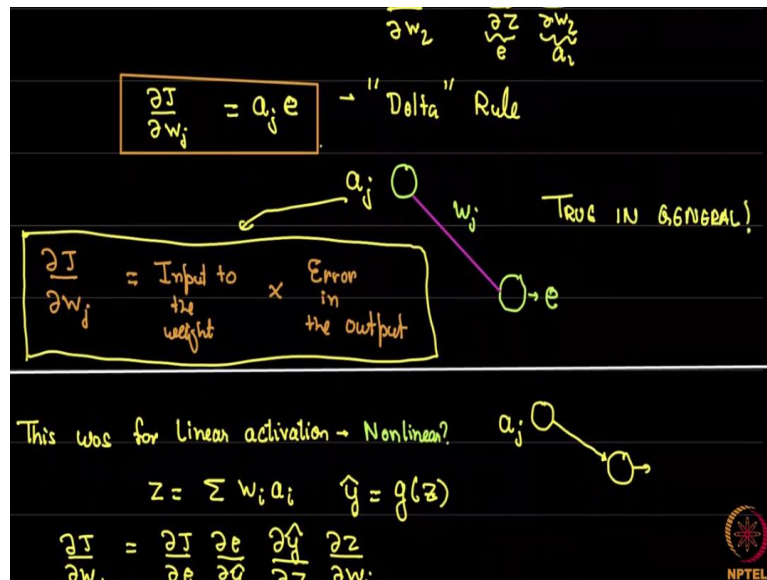 ∂w₂ ∂z ∂w₂
e a₂
∂J/∂wⱼ = aⱼ e → "Delta" Rule
aⱼ wⱼ TRUE IN GENERAL!
∂J/∂wⱼ = Input to the weight × Error in the output
→ e
This was for Linear activation → Nonlinear? aⱼ
z = Σ wᵢ aᵢ ŷ = g(z)
∂J/∂wᵢ = ∂J/∂e ∂e/∂ŷ ∂ŷ/∂z ∂z/∂wᵢ
NPTEL